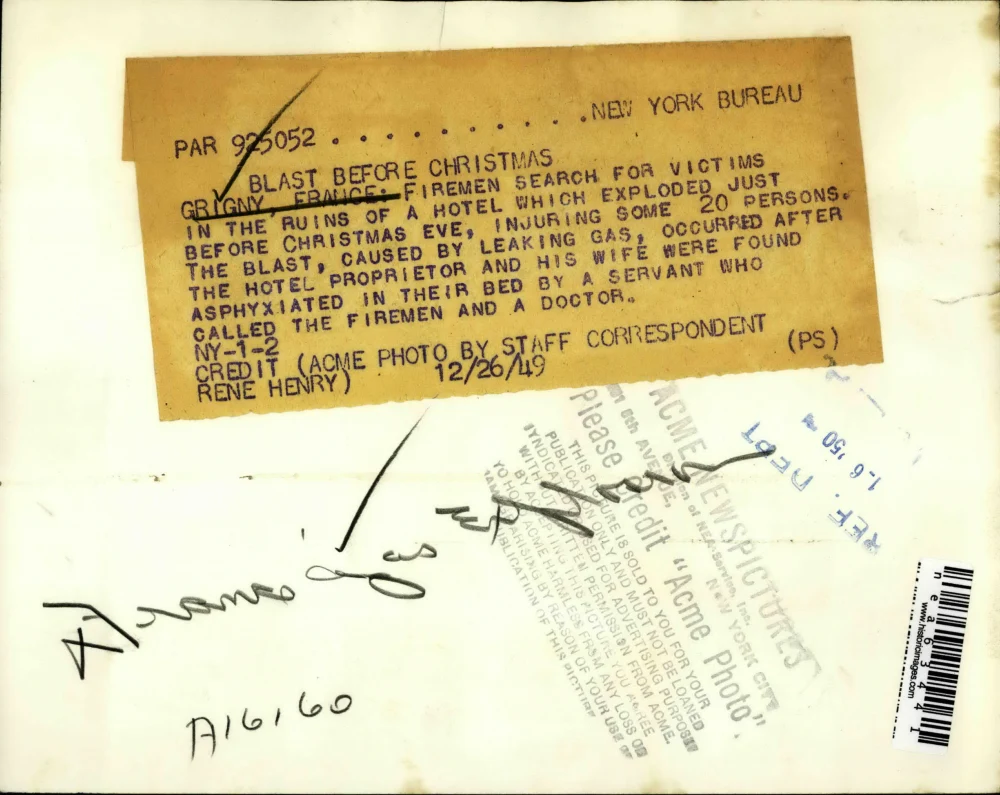 PAR 925052 . . . . . . . . . . .NEW YORK BUREAU
BLAST BEFORE CHRISTMAS
GRIGNY, FRANCE: FIREMEN SEARCH FOR VICTIMS
IN THE RUINS OF A HOTEL WHICH EXPLODED JUST
BEFORE CHRISTMAS EVE, INJURING SOME 20 PERSONS.
THE BLAST, CAUSED BY LEAKING GAS, OCCURRED AFTER
THE HOTEL PROPRIETOR AND HIS WIFE WERE FOUND
ASPHYXIATED IN THEIR BED BY A SERVANT WHO
CALLED THE FIREMEN AND A DOCTOR.
NY-1-2
CREDIT (ACME PHOTO BY STAFF CORRESPONDENT (PS)
RENE HENRY) 12/26/49
REF. DEPT
1-6 '50
ACME NEWSPICTURES
of NEA Service, Inc.
8th AVENUE, NEW YORK CITY
Please credit "Acme Photo"
THIS PICTURE IS SOLD TO YOU FOR YOUR
PUBLICATION ONLY AND MUST NOT BE LOANED
SYNDICATED USED FOR ADVERTISING PURPOSES
WITHOUT WRITTEN PERMISSION FROM ACME.
BY ACCEPTING THIS PICTURE YOU AGREE
TO HOLD ACME HARMLESS FROM ANY LOSS OR
ARISING BY REASON OF YOUR USE OF
PUBLICATION OF THIS PICTURE
France gas
A16160
www.historicimages.com
nea63441